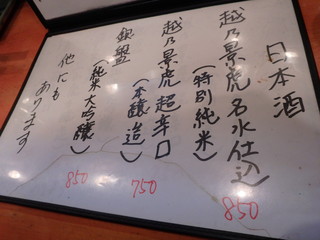 日本酒
越乃景虎名水仕込
(特別純米)
850
越乃景虎超辛口
(本醸造)
750
銀盤
(純米大吟醸)
850
他にも
あります